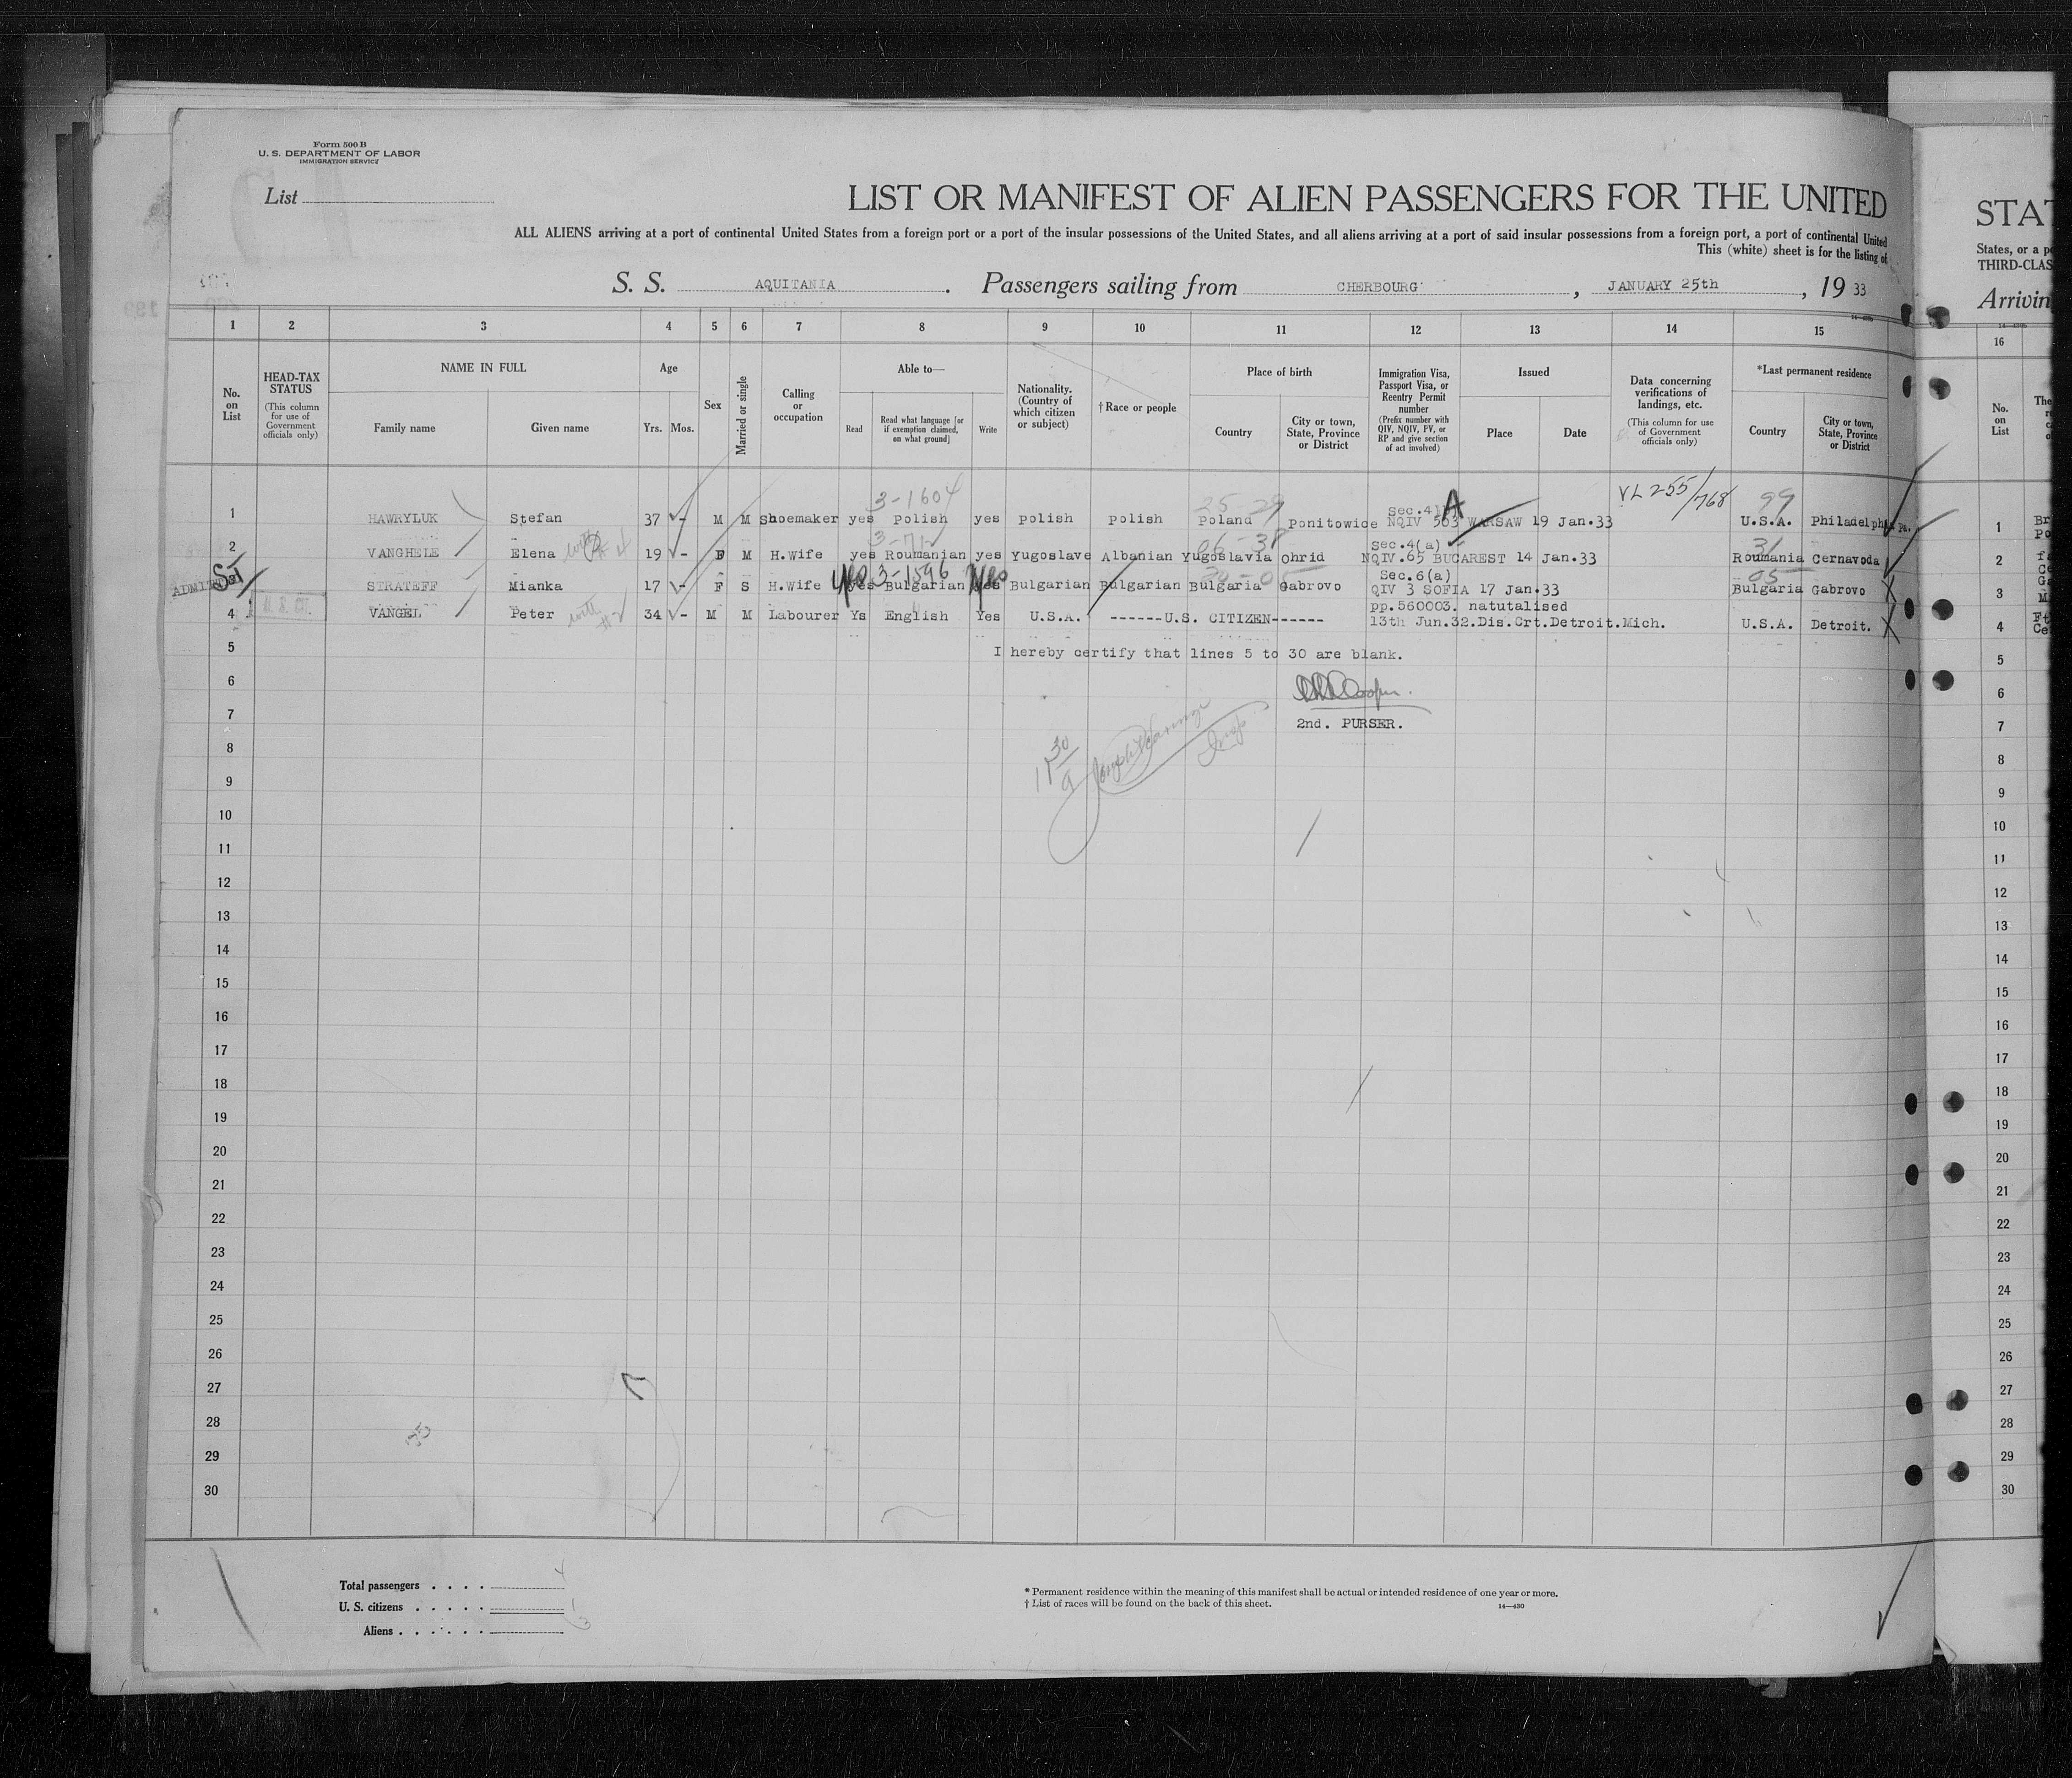 Form 500 B
U. S. DEPARTMENT OF LABOR
IMMIGRATION SERVICE
List
LIST OR MANIFEST OF ALIEN PASSENGERS FOR THE UNITED
ALL ALIENS arriving at a port of continental United States from a foreign port or a port of the insular possessions of the United States, and all aliens arriving at a port of said insular possessions from a foreign port, a port of continental United
This (white) sheet is for the listing of
S. S. AQUITANIA . Passengers sailing from CHERBOURG , JANUARY 25th , 19 33
1 2 3 4 5 6 7 8 9 10 11 12 13 14 15
No. on List
HEAD-TAX STATUS (This column for use of Government officials only)
NAME IN FULL
Family name Given name
Age
Yrs. Mos.
Sex
Married or single
Calling or occupation
Able to—
Read Read what language [or if exemption claimed, on what ground] Write
Nationality. (Country of which citizen or subject)
†Race or people
Place of birth
Country City or town, State, Province or District
Immigration Visa, Passport Visa, or Reentry Permit number (Prefix number with QIV, NQIV, PV, or RP and give section of act involved)
Issued
Place Date
Data concerning verifications of landings, etc. (This column for use of Government officials only)
*Last permanent residence
Country City or town, State, Province or District
3-1604 25-29 Sec.4 A VL 255/768 99
1 HAWRYLUK Stefan 37 - M M Shoemaker yes Polish yes Polish Polish Poland Ponitowice NQIV 503 WARSAW 19 Jan.33 U.S.A. Philadelph Pa.
Sec.4(a) 31
2 VANGHELE Elena 19 - F M H.Wife yes Roumanian yes Yugoslave Albanian Yugoslavia Ohrid NQIV.65 BUCAREST 14 Jan.33 Roumania Cernavoda
yes 3-1596 yes Sec.6(a) 05
ADMITTED
3 STRATEFF Mianka 17 - F S H.Wife yes Bulgarian yes Bulgarian Bulgarian Bulgaria Gabrovo QIV 3 SOFIA 17 Jan.33 Bulgaria Gabrovo
pp.560003. natutalised
4 VANGEL Peter 34 - M M Labourer Ys English Yes U.S.A. ------U.S. CITIZEN------ 13th Jun.32.Dis.Crt.Detroit.Mich. U.S.A. Detroit.
5 I hereby certify that lines 5 to 30 are blank.
6
7 2nd. PURSER.
8
9
10
11
12
13
14
15
16
17
18
19
20
21
22
23
24
25
26
27
28
29
30
Total passengers . . . . 4
U. S. citizens . . . . . 1
Aliens . . . . . . 3
* Permanent residence within the meaning of this manifest shall be actual or intended residence of one year or more.
† List of races will be found on the back of this sheet.
14—430
STAT
States, or a po
THIRD-CLAS
Arrivin
16
No. on List
1
2
3
4
5
6
7
8
9
10
11
12
13
14
15
16
17
18
19
20
21
22
23
24
25
26
27
28
29
30